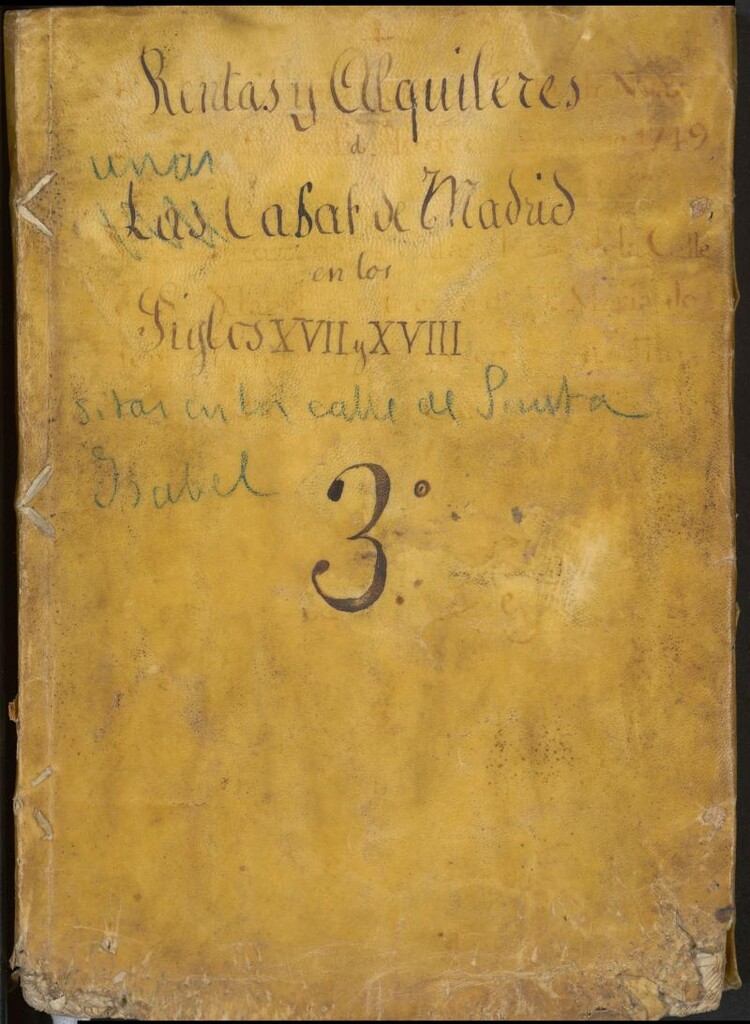 Rentas y Alquileres
d
unas
Las Casas de Madrid
en los
Siglos XVII y XVIII
sitas en la calle de Santa
Isabel
3.º
1749
de la Calle